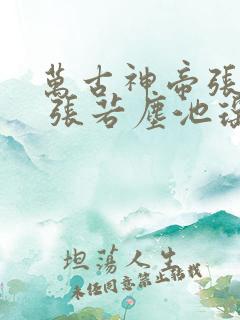 萬古神帝張
張若塵池
坦蕩人生
未经同意禁止转载